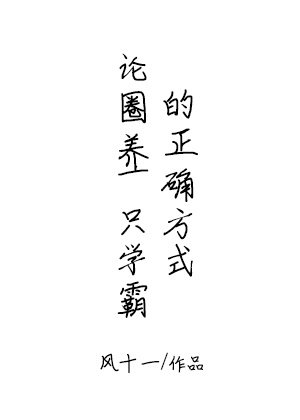 论圈养一只学霸
的正确方式
风十一/作品